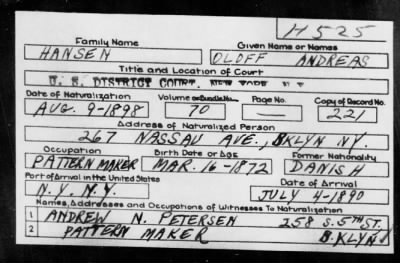 H525
Family Name Given Name or Names
HANSEN OLOFF ANDREAS
Title and Location of Court
U. S. DISTRICT COURT, NEW YORK N Y
Date of Naturalization Volume or Bundle No. Page No. Copy of Record No.
AUG. 9-1898 70 221
Address of Naturalized Person
267 NASSAU AVE., BKLYN NY.
Occupation Birth Date or Age Former Nationality
PATTERN MAKER MAR. 16-1872 DANISH
Port of Arrival in the United States Date of Arrival
N.Y. N.Y. JULY 4-1890
Names, Addresses and Occupations of Witnesses To Naturalization
1 ANDREW N. PETERSEN 258 S. 5TH ST.
2 PATTERN MAKER BKLYN